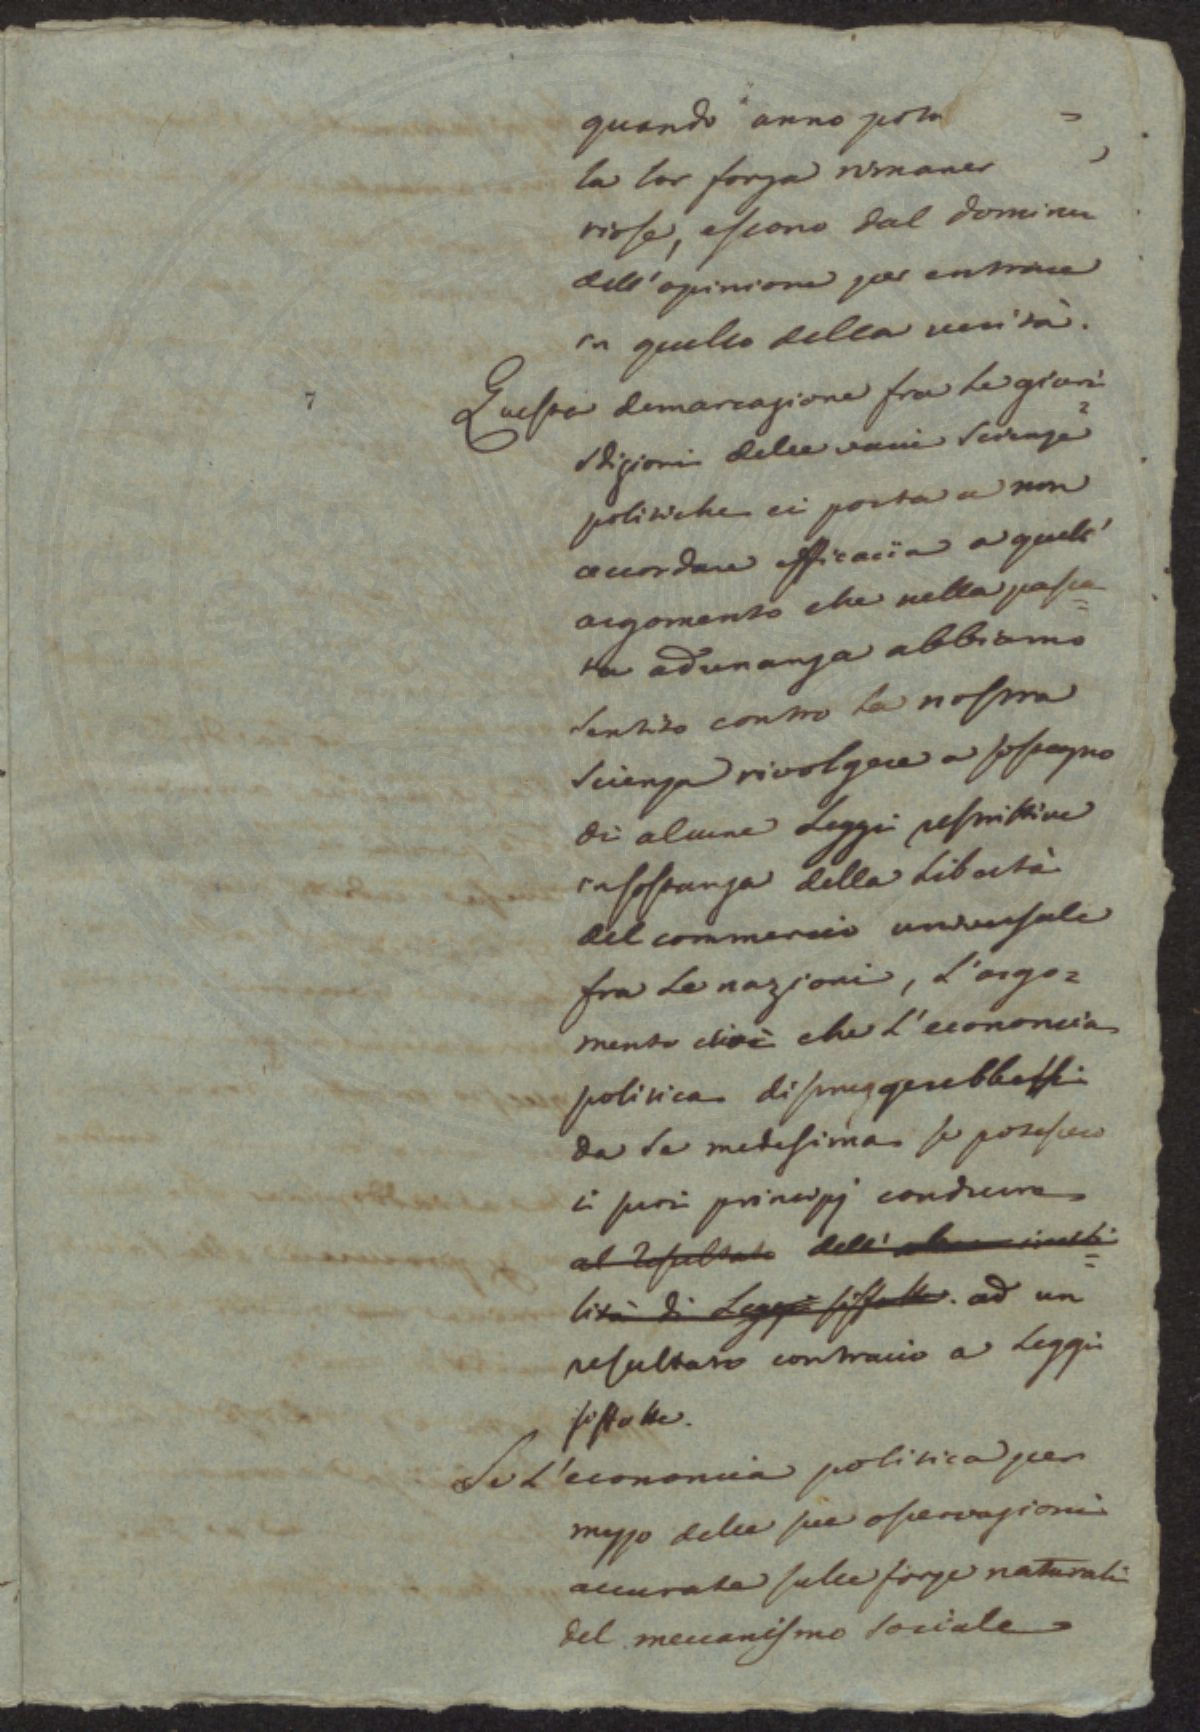 quando anno
la lor forza rimaner
, escono dal dominio
dell'opinione per entrare
in quello della verità.
7
Questa demarcazione fra le giuri
sdizioni delle varie Scienze
politiche ci porta a non
accordare efficacia a quell'
argomento che nella passa=
ta adunanza abbiamo
sentito contro la nostra
Scienza rivolgere a sostegno
di alcune Leggi restrittive
in sostanza della Libertà
del commercio universale
fra le nazioni, L'argo=
mento cioè che L'economia
politica
da se medesima se potessero
i suoi principj condurre
al resultato dell' inuti=
lità di Leggi siffatte. ad un
resultato contrario a Leggi
siffatte.
Se L'economia politica per
mezzo delle sue osservazioni
accurate sulle forze naturali
del meccanismo sociale